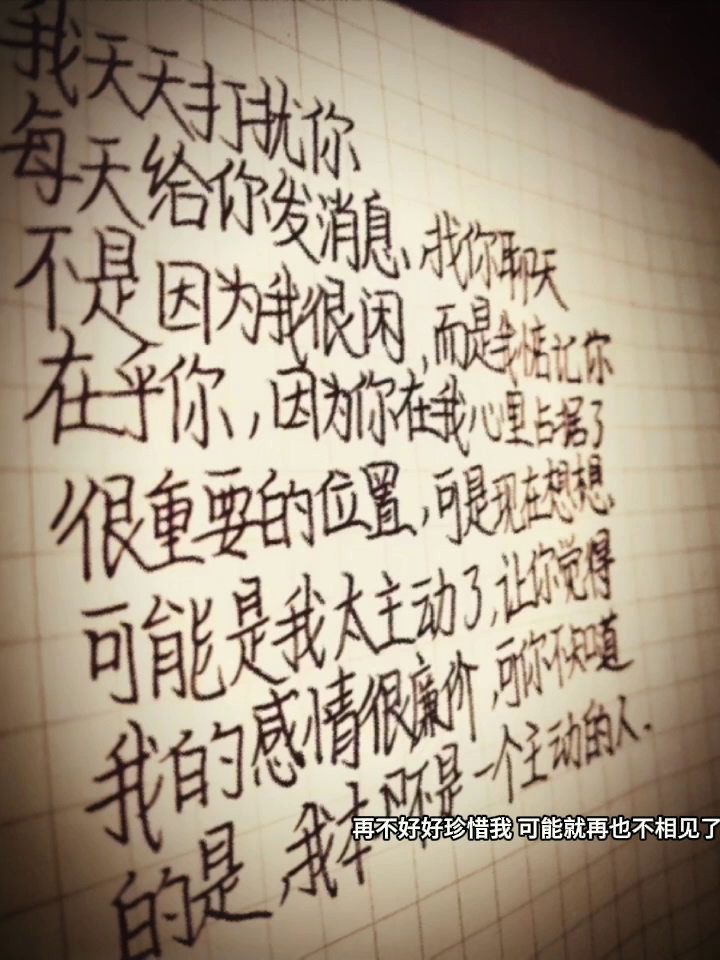 我天天打扰你
每天给你发消息、找你聊天
不是因为我很闲,而是我惦记你
在乎你,因为你在我心里占据了
很重要的位置,可是现在想想、
可能是我太主动了,让你觉得
我的感情很廉价,可你不知道
的是,我本不是一个主动的人.
再不好好珍惜我 可能就再也不相见了